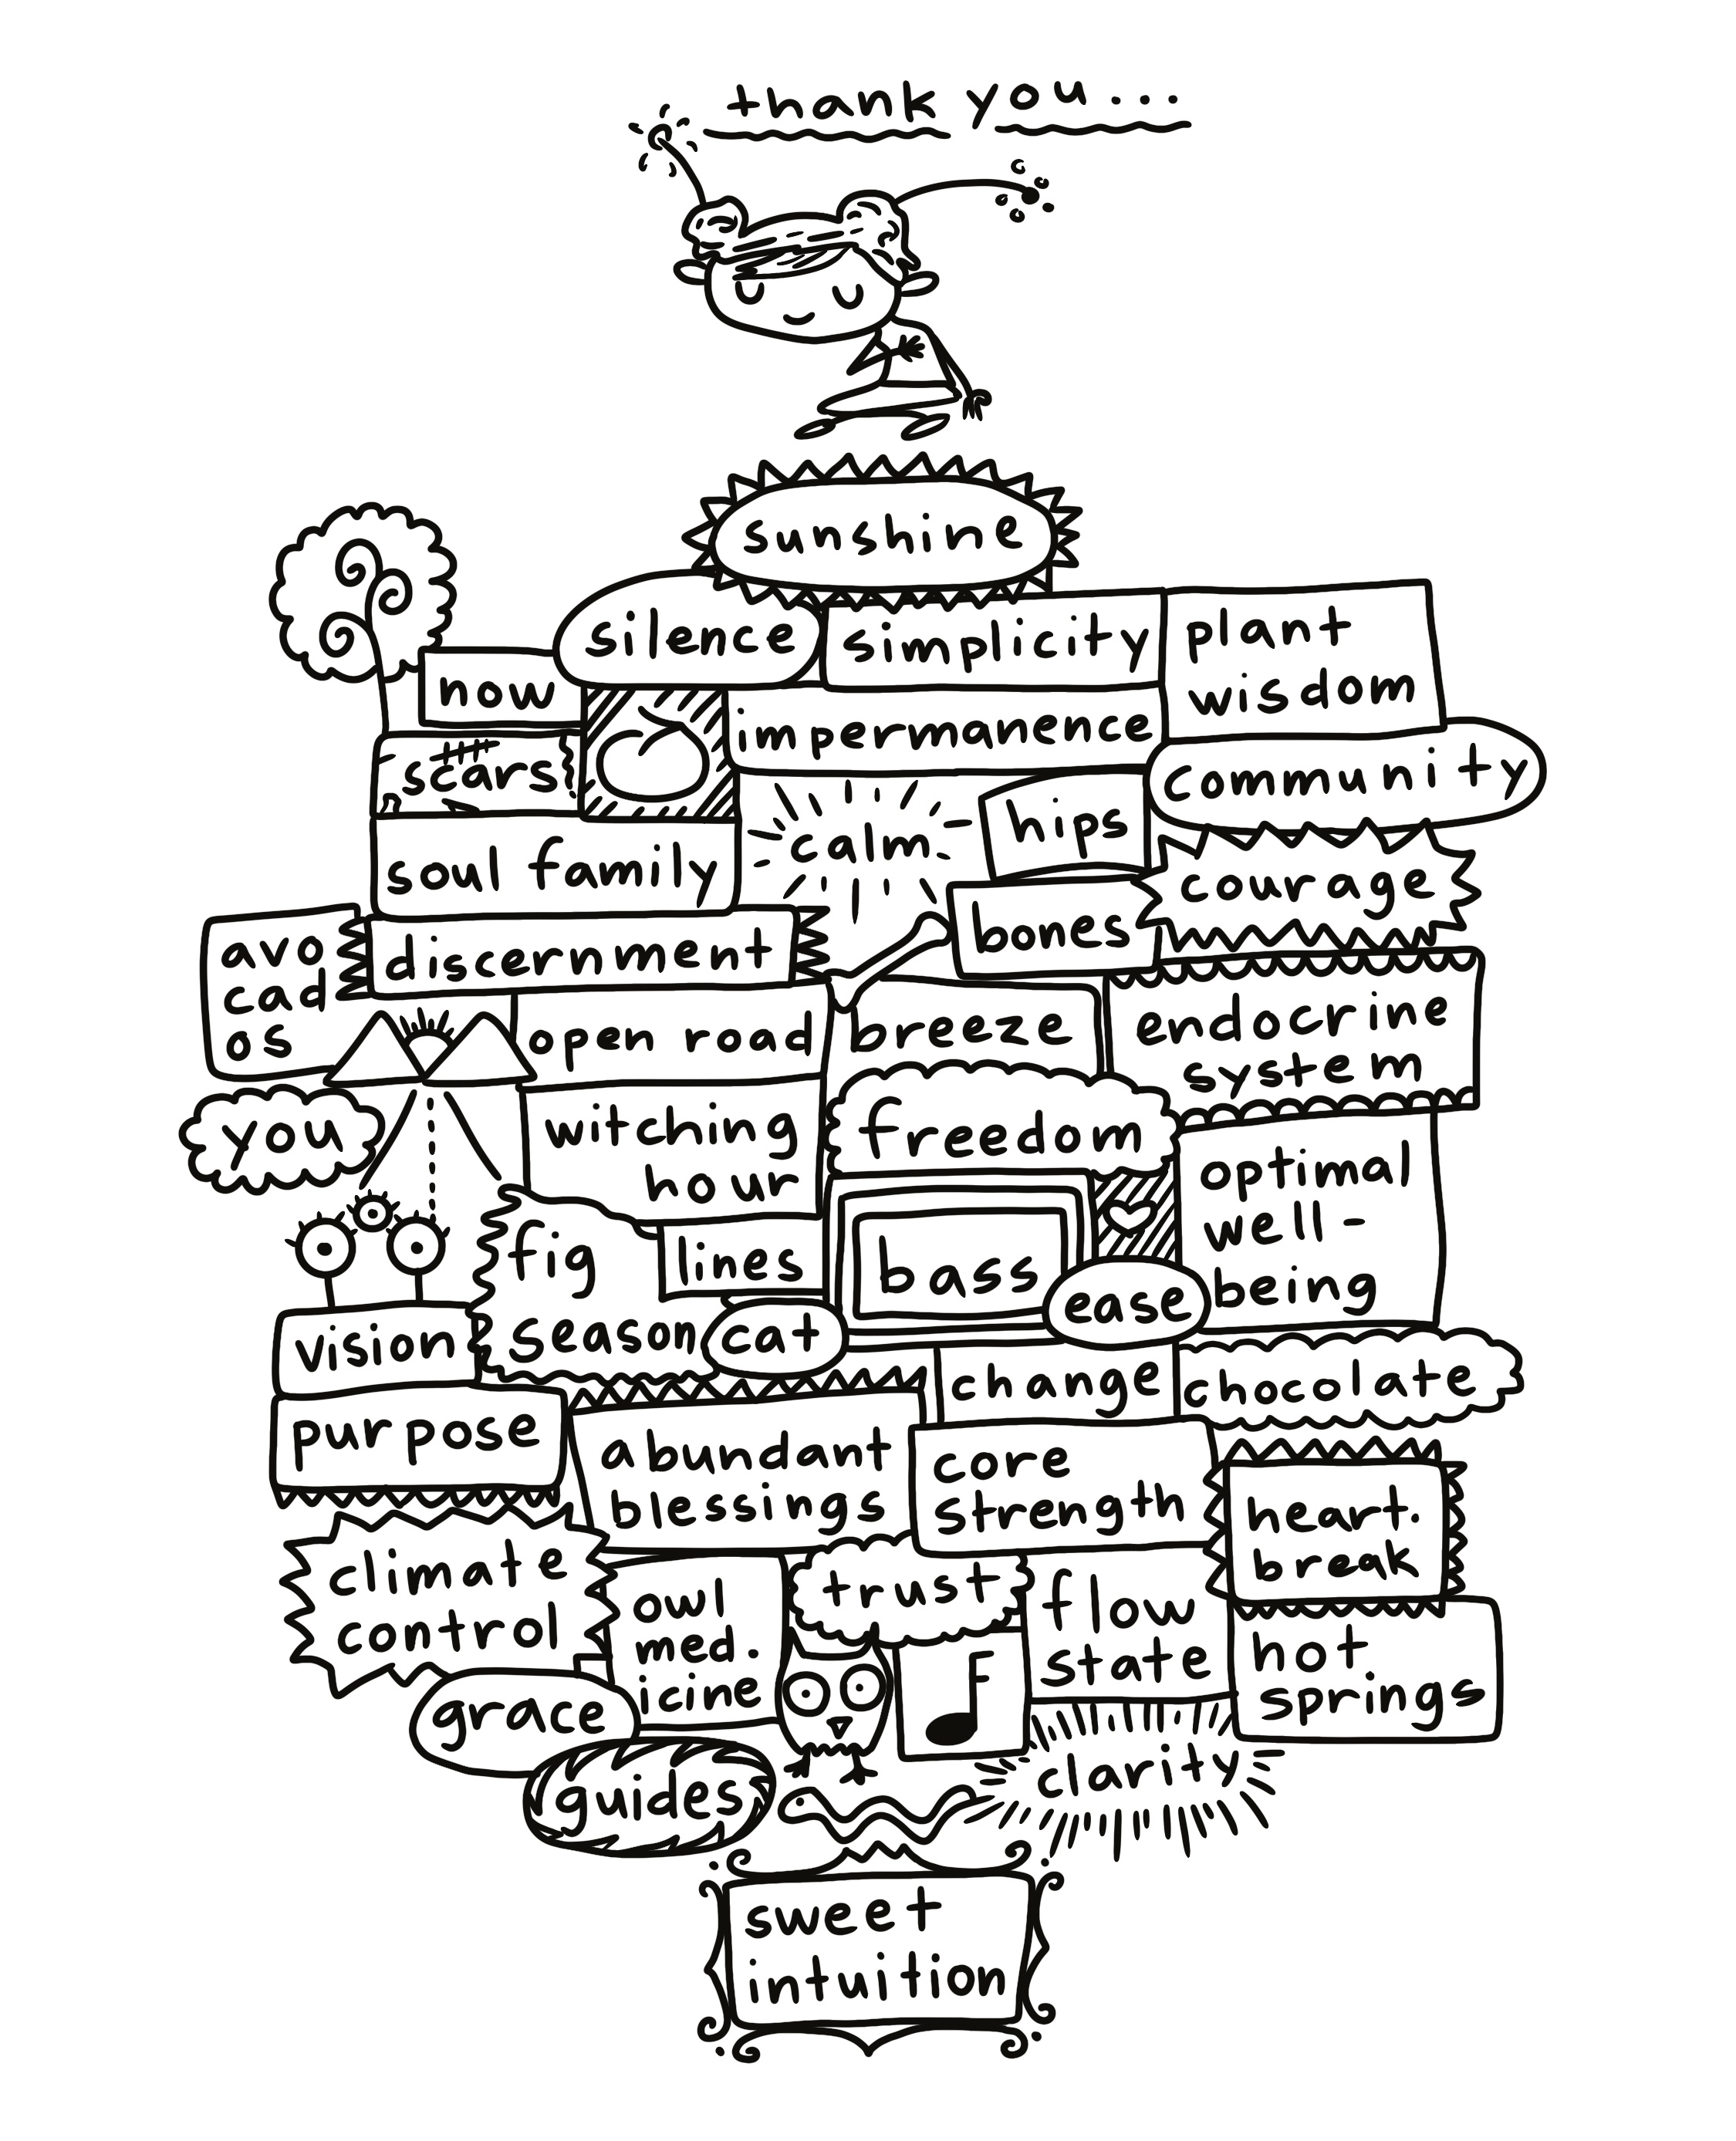 thank you....
sunshine
silence
simplicity
plant
wisdom
now
impermanence
scars
community
hips
calm
soul family
courage
bones
avo
cad
os
discernment
open road
breeze
endocrine
system
you
witching
hour
freedom
optimal
well-
being
fig
season
lines
bass
ease
vision
cat
change
chocolate
purpose
abundant
blessings
core
strength
heart.
break
climate
control
owl
med.
icine
trust
flow
state
hot
springs
grace
guides
clarity
sweet
intuition